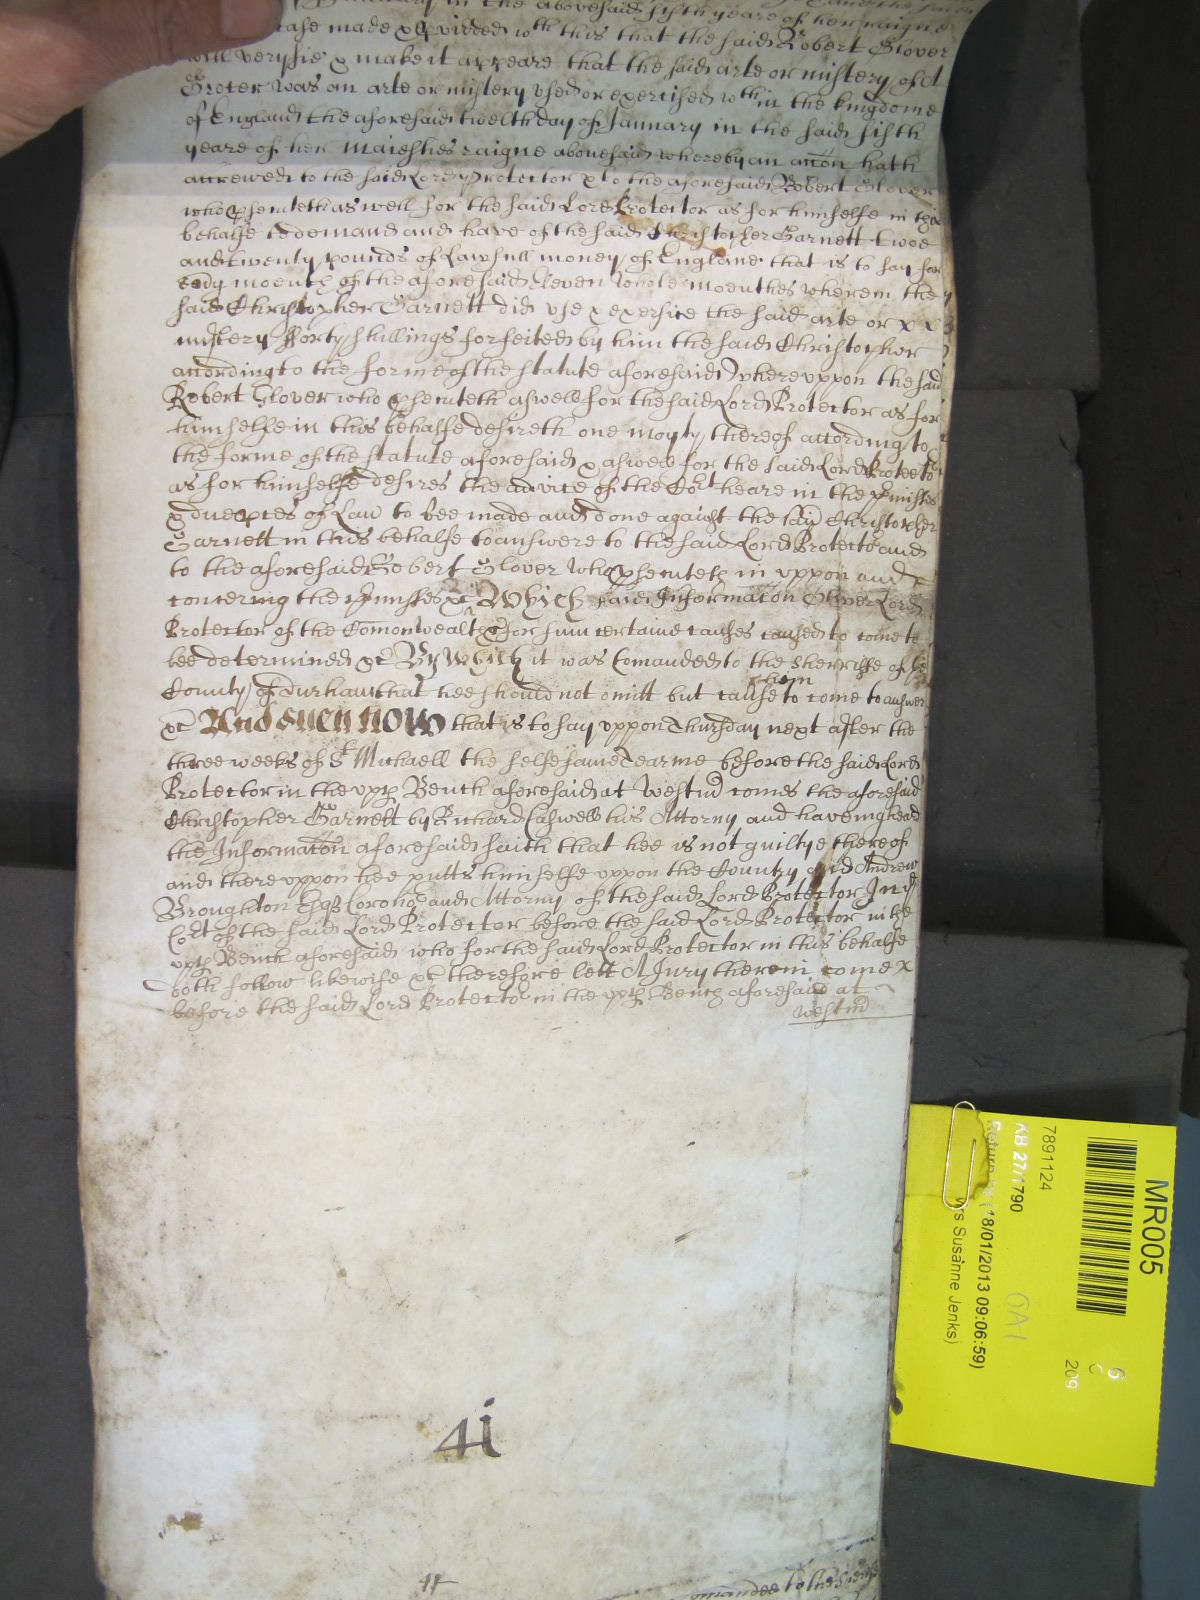 January in the abovesaid fifth yeare of her raigne
case made & pvided wth this that the said Robert Glover
will verifie & make it appeare that the said arte or mistery of A
Grocer was an arte or mistery used or exercised wthin the kingdome
of England the aforesaid twelth day of January in the said fifth
yeare of her Maiesties raigne abovesaid whereby an accon hath
accrewed to the said Lord Protector & to the aforesaid Robert Glover
who psenteth as well for the said Lord Protector as for himselfe in this
behalfe to demand and have of the said Christopher Garnett twoe
and twenty pounds of lawfull money of England that is to say for
eody moenth of the aforesaid Eleven whole moenthes wherein the
said Christopher Garnett did use & exersice the said arte or x x
mistery fforty shillings forfeited by him the said Christopher
according to the forme of the statute aforesaid Whereuppon the said
Robert Glover who psenteth aswell for the said Lord Protector as for
himselfe in this behalfe desireth one moyty thereof according to
the forme of the statute aforesaid & aswell for the said Lord Protector
as for himselfe desires the advice of the Cort heare in the pmisses
& due pces of Law to bee made and done against the said Christopher
Garnett in this behalfe to answere to the said Lord Protector and
to the aforesaid Robert Glover who psenteth in uppon and
concering the pmisses &c Which said Informacon Oliver Lord
Protector of the Comonwealth &c for sum certaine causes caused to come to
bee determined &c By Which it was Comanded to the Sherriffe of the
County of Durham that hee should not omitt but cause him to come to answer
&c And such now that is to say uppon Thursday next after the
three weeks of St Michaell the selfesame Tearme before the said Lord
Protector in the uppr Bench aforesaid at Westm comes the aforesaid
Christopher Garnett by Richard Caswell his Attorny and haveing heard
the Informacon aforesaid saith that hee is not guiltye thereof
and thereuppon hee putts himselfe uppon the Country and Andrew
Broughton Esqr Corono and Attorny of the said Lord Protector In the
Cort of the said Lord Protector before the said Lord Protector in the
uppr Bench aforesaid who for the said Lord Protector in this behalfe
doth follow likewise &c therefore lett A Jury therein come x
before the said Lord Protector in the uppr Bench aforesaid at
Westm
4i
comanded to the
MR005
7891124
KB 27/1790
Return by (18/01/2013 09:06:59)
Mrs Susanne Jenks)
OA1
6
C
209